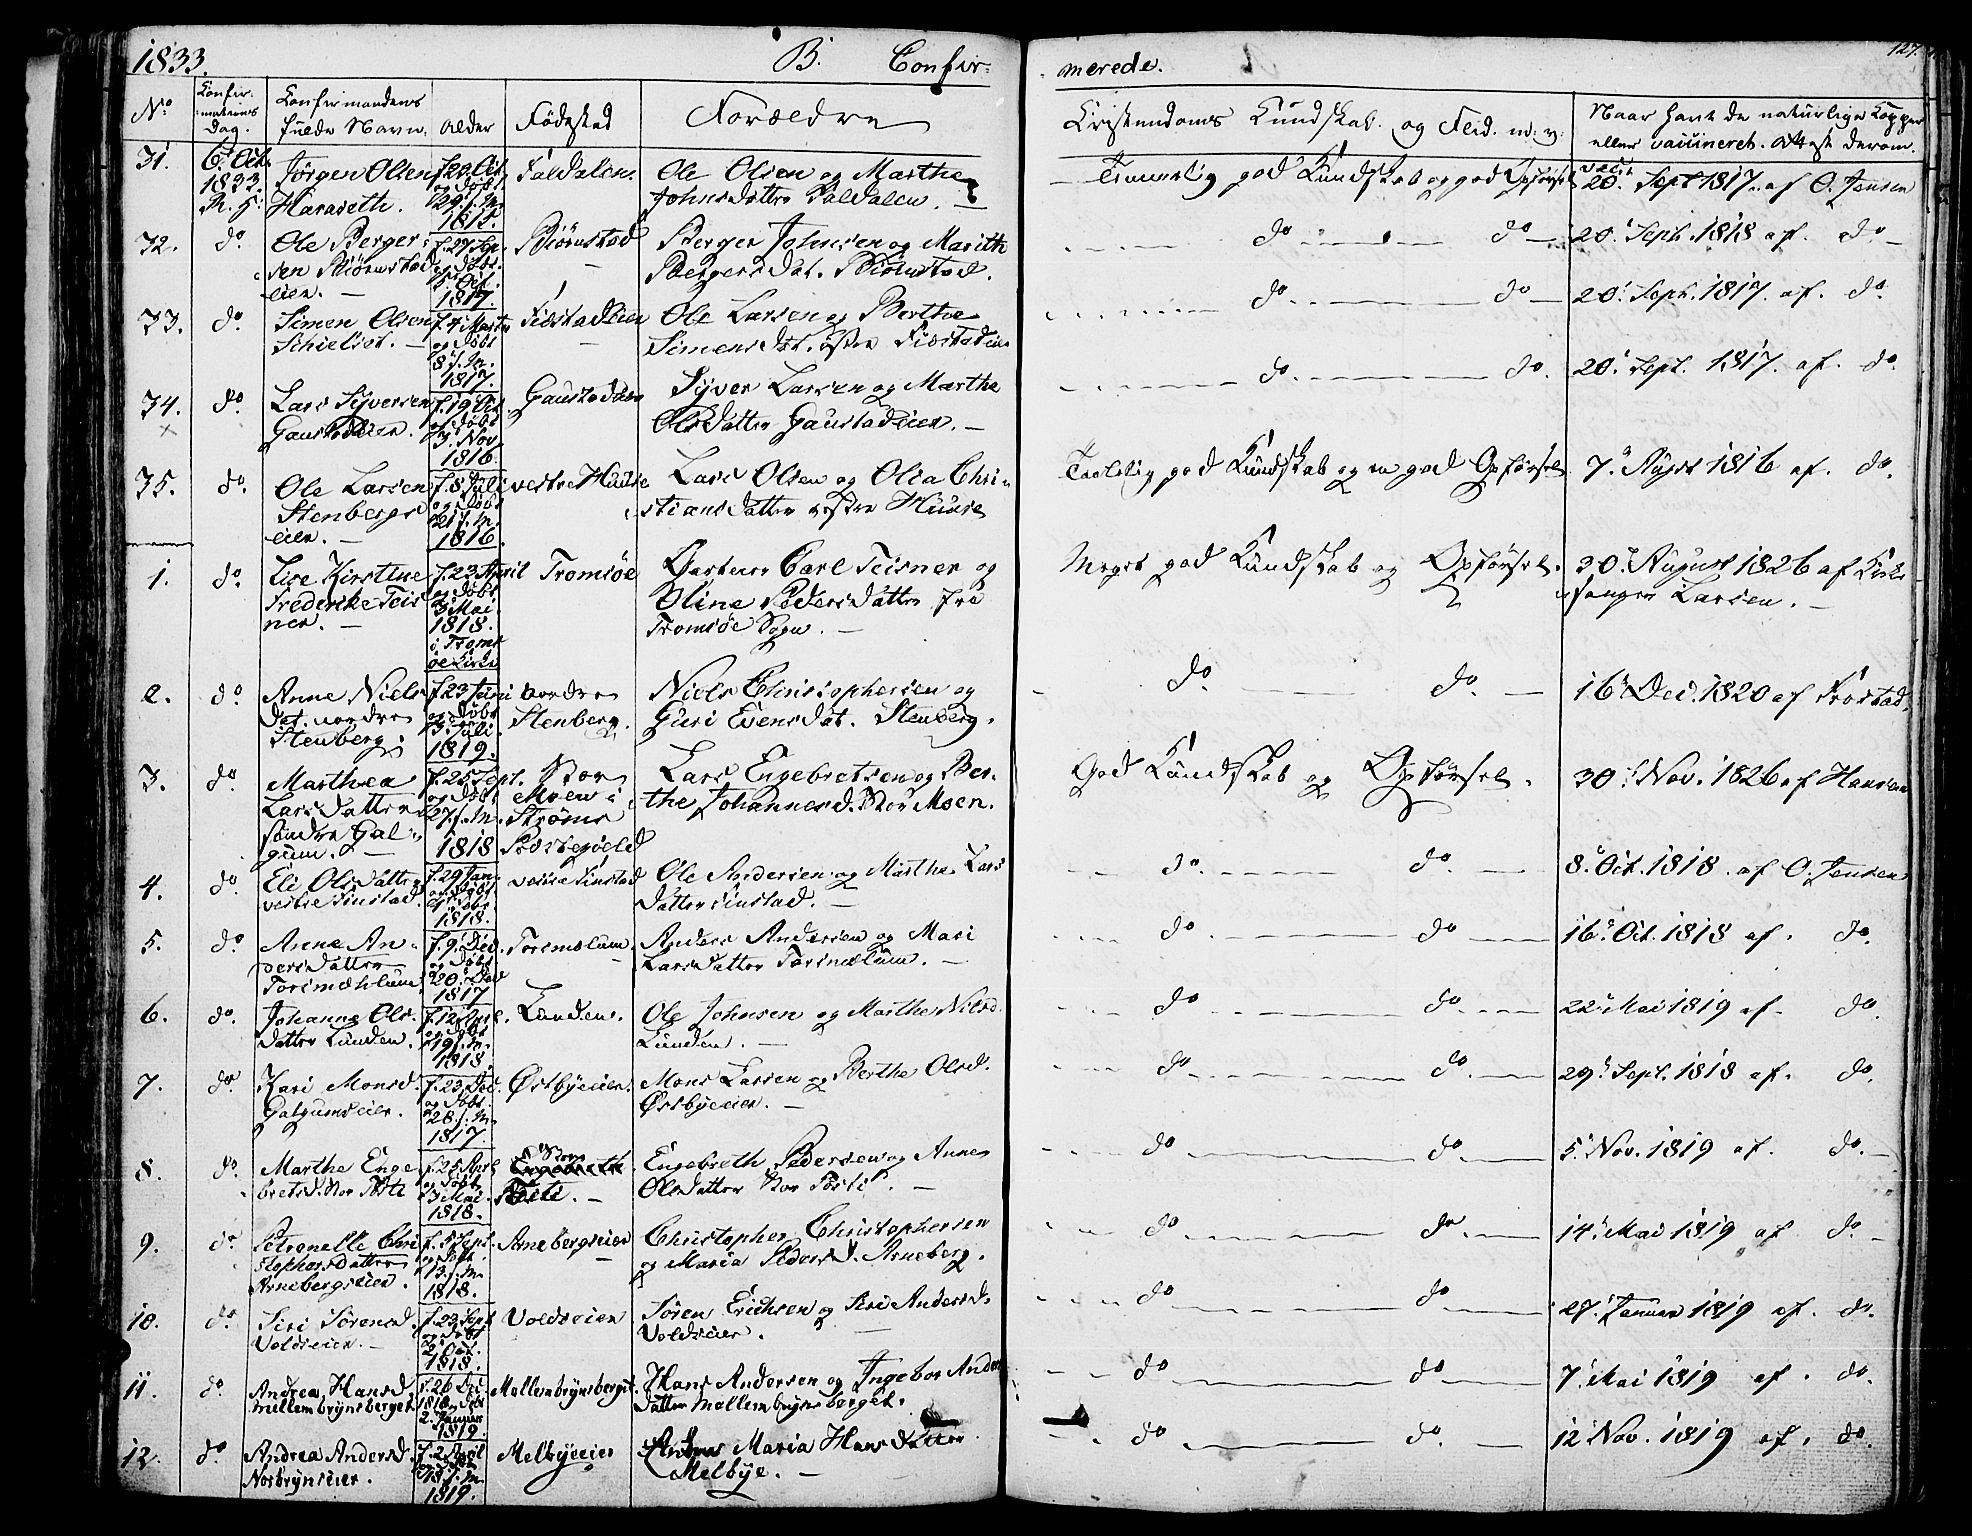 1833.
B. Confir-
merede.
127.
No
Confir-
mations
Dag.
Confirmandens
fulde Navn.
Alder
Fødested
Forældre
Kristendoms Kundskab. og Flid. m. v.
Naar havt de naturlige Kopper
eller vaccineret. Attest derom.
31. 6. Oct. 1833.
Jørgen Olsen
Haraseth.
1815.
Faldalen.
Ole Olsen og Marthe
Johnsdatter Faldalen.
Temmelig god Kundskab og god Opførsel
20. Sept 1817. af O. Jensen
32. do.
Ole Berger-
sen Biørnstad
eien.
f. 27. Sep.
og døbt
Oct.
1817.
Biørnstad
Berger Johnsen og Marith
Bergersdat. Biørnstad.
do do
20. Sept. 1818 af. do
33. do.
Simen Olsen
f. 4 Marts
og døbt
8. s. M.
1817.
Ole Larsen og Berthe
Simensdat. østre
do do
20. Sept. 1817. af. do.
34. do.
Lars Syversen
Gaustadeien.
f. 19 Oct
og døbt
3. Nov
1816.
Gaustadeien
Syver Larsen og Marthe
Olsdatter Gaustadeien.
do. do.
20. Sept. 1817. af. do.
35. do.
Ole Larsen
Stenbergs
eien.
f. 8 Juli
og døbt
21 s. M.
1816.
vestre Huuse
Lars Olsen og Olea Chri-
stiansdatter vestre Huuse
Taalelig god Kundskab og en god Opførsel
7. August 1816 af. do.
1. do.
Lise Kirstine
Frederike Teis
ner.
f. 23 April
og døbt
3 Mai
1818.
i Troms
øe Kirke
Tromsøe
Carl Teisner og
Oline Pedersdatter fra
Tromsøe Sogn.
Meget god Kundskab og Opførsel.
30. August 1826 af Kirke
sanger Larsen.
2. do
Anne Niels
dat. nordre
Stenberg.
f. 23 Juni
og døbt
Juli
1819.
nordre
Stenberg.
Niels Christophersen og
Guri Evensdat. Stenberg.
do. do.
16. Dec. 1820 af Frøstad.
3. do
Marthea
Larsdatter
søndre Gal-
gum.
f. 25 Sept.
og døbt
27. s. M.
1818
Stor
Moen i
Strøms
Præstegield
Lars Engebretsen og Ber-
the Johannesd. Stor Moen.
God Kundskab og Opførsel.
30. Nov. 1826 af Hansen
4. do.
Eli Olsdatter
vestre Finstad.
f. 29 Jan.
og døbt
1818.
vestre Finstad
Ole Andersen og Marthe Lars
datter Finstad.
do. do.
8. Oct. 1818. af O. Jensen
5. do
Anne An-
dersdatter
Torsmæhlum
f. 9. Dec.
og døbt
20. Dec
1817
Torsmælum.
Anders Andersen og Mari
Larsdatter Torsmælum.
do. do
16. Oct. 1818 af. do.
6. do.
Johanne Ols-
datter Lunden.
og døbt
19 s. M.
1818.
Lunden.
Ole Johnsen og Marthe Nilsd.
Lunden.
do do
22. Mai 1819 af. do.
7. do.
Kari Monsd.
Galgumseien.
f. 23. Dec.
og døbt
28. s. M.
1817.
Østbyeeien.
Mons Larsen og Berthe Olsd.
Østbyeeien.
do do.
29. Sept. 1818 af. do.
8. do.
Marthe Enge
bretsd. Stor
f. 25 April
og døbt
3 Mai.
1818.
Stor
Engebreth Pedersen og Anne
Olsdatter Stor
do do.
5. Nov. 1819 af. do.
9. do.
Petronelle Chri
stophersdatter
Arnebergseien.
f. 5 Sept.
og døbt
13. s. M.
1818.
Arnebergseien
Christopher Christophersen
og Maria Pedersd. Arneberg.
do do.
14. Mai 1819 af do.
10. do.
Siri Sørensd.
Voldseien.
f. 23 Sept
og døbt
2. Oct.
1818.
Voldseien
Søren Erichsen og Siri Andersd.
Voldseien.
do do.
27. Januar 1819 af. do.
11. do
Andrea Hansd.
Mellembrynsberget.
f. 26 Dec.
1818 døbt
2. Januar
1819.
Mellembrynsberget.
Hans Andersen og Ingebor Anders
datter Mellembrynsberget.
do do
7. Mai 1819 af. do.
12. do
Andrea Andersd.
Nosbrynseien.
f. 2 April
og døbt
18 s. M.
1819.
Melbyeeien
Maria Hansdatter
Melbye.
do do.
12 Nov. 1819 af. do.